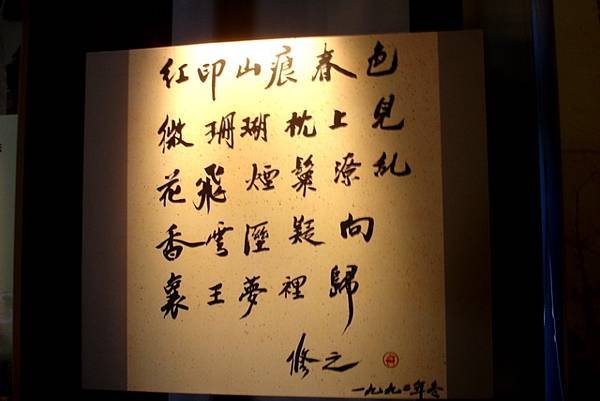 红印山痕春色
微珊瑚枕上見
花飛煙鬟潦乱
香雲溼疑向
襄王夢裡歸
修之
一九九〇年冬